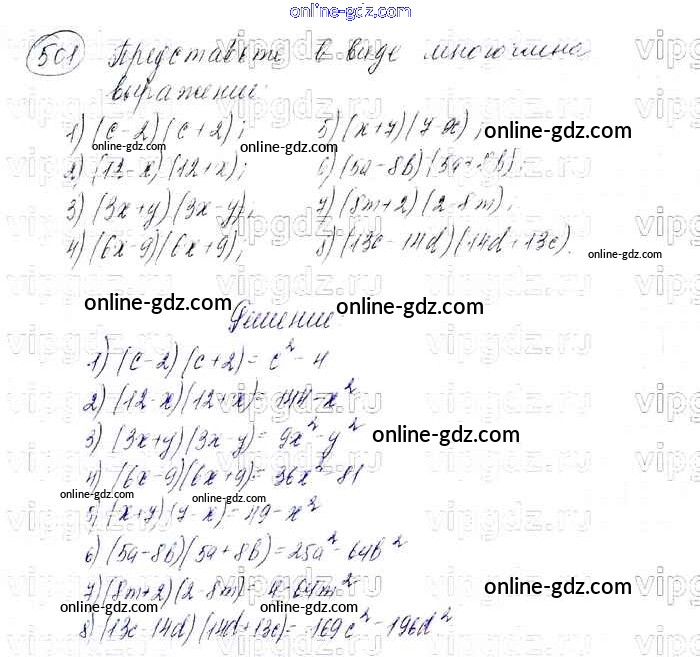 online-gdz.com
501 Представьте в виде многочлена
выражение:
1) (c-2)(c+2); 5) (x+7)(7-x);
online-gdz.com online-gdz.com
2) (12-x)(12+x); 6) (5a-8b)(5a+8b);
3) (3x+y)(3x-y); 7) (8m+2)(2-8m);
4) (6x-9)(6x+9); 8) (13c-14d)(14d+13c).
online-gdz.com
online-gdz.com online-gdz.com
Решение
1) (c-2)(c+2)= c² - 4
2) (12-x)(12+x)= 144-x²
3) (3x+y)(3x-y)= 9x²-y²
online-gdz.com
4) (6x-9)(6x+9)= 36x²-81
online-gdz.com online-gdz.com
5) (x+7)(7-x)=49-x²
6) (5a-8b)(5a+8b)=25a²-64b²
7) (8m+2)(2-8m)= 4-64m²
online-gdz.com
online-gdz.com online-gdz.com
8) (13c-14d)(14d+13c)= 169c²-196d²